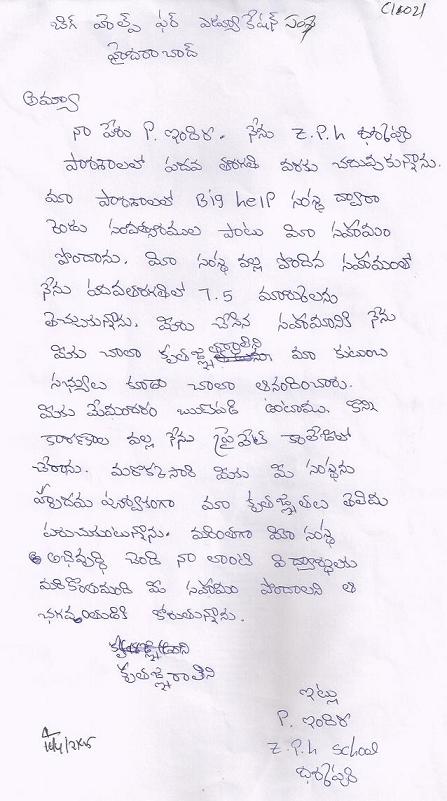 C/1002/
బిగ్ హెల్ప్ ఫర్ ఎడ్యుకేషన్ సంస్థ
హైదరాబాద్
అమ్మా
నా పేరు P. ఇందిర. నేను Z.P.h ధర్మపురి
పాఠశాలలో పదవ తరగతి వరకు చదువుకున్నాను.
మా పాఠశాలలో Big help సంస్థ ద్వారా
రెండు సంవత్సరముల పాటు మీ సహాయం
పొందాను. మీ సంస్థ వల్ల పొందిన సహాయంతో
నేను పదవతరగతిలో 7.5 మార్కులను
తెచ్చుకున్నాను. మీరు చేసిన సహాయానికి నేను
మీకు చాలా కృతజ్ఞతరాలిని మా కుటుంబ
సభ్యులు కూడా చాలా ఆనందించారు.
మీకు మేమందరం ఋణపడి ఉంటాము. కొన్ని
కారణాల వల్ల నేను ప్రైవేట్ కాలేజీలో
చేరాను. మరొక్కసారి మీకు మీ సంస్థకు
హృదయ పూర్వకంగా మా కృతజ్ఞతలు తెలియ
పరుచుకుంటున్నాను. మరింతగా మీ సంస్థ
అభివృద్ధి చెంది నా లాంటి విద్యార్థులు
మరికొంతమంది మీ సహాయం పొందాలని ఆ
భగవంతుడికి కోరుతున్నాను.
కృతజ్ఞురాలిని
ఇట్లు
P. ఇందిర
Z.P.h school
ధర్మపురి